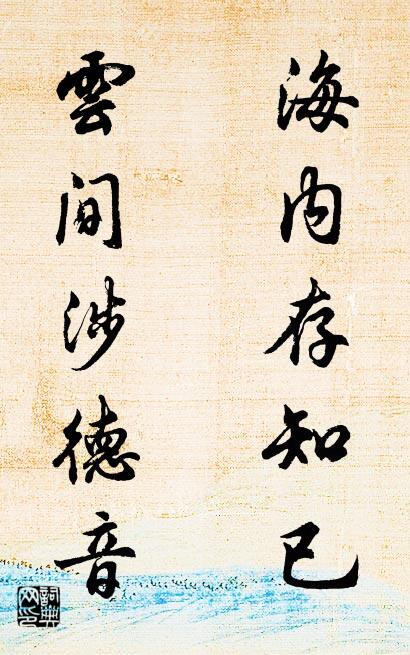 海内存知己
雲間涉德音